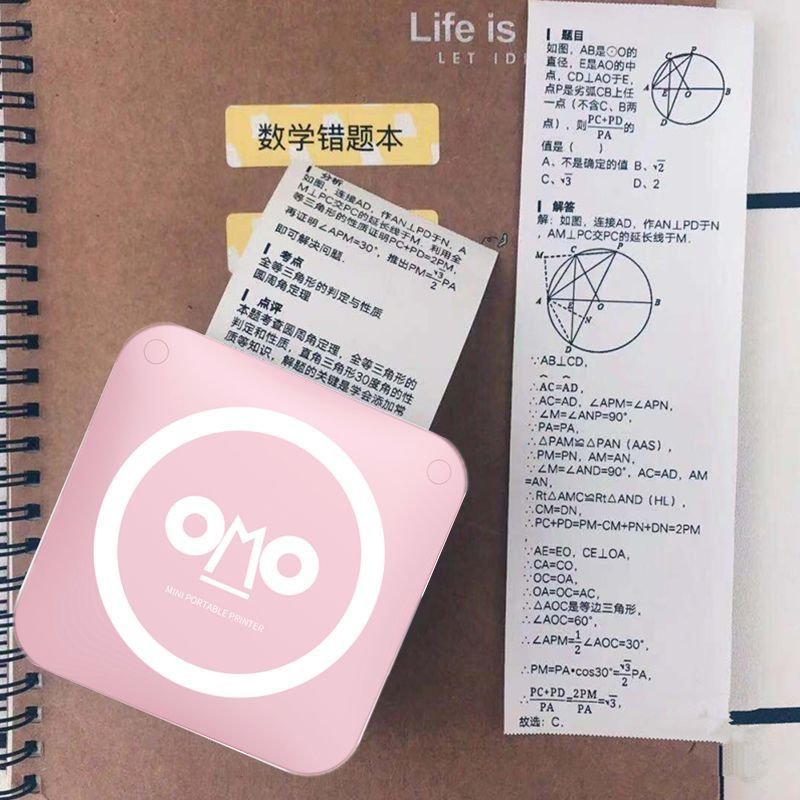 Life is
LET
数学错题本
题目
如图，AB是⊙O的
直径，E是AO的中
点，CD⊥AO于E，
点P是劣弧CB上任
一点（不含C、B两
点），则PC+PD/PA的
值是（ ）
A、不是确定的值 B、√2
C、√3 D、2
C P
A E O B
D
解答
解：如图，连接AD，作AN⊥PD于N
，AM⊥PC交PC的延长线于M.
M C P
A E O B
N
D
∵AB⊥CD，
∴AC=AD，
∴AC=AD，∠APM=∠APN，
∵∠M=∠ANP=90°，
∵PA=PA，
∴△PAM≌△PAN（AAS），
∴PM=PN，AM=AN，
∵∠M=∠AND=90°，AC=AD，AM
=AN，
∴Rt△AMC≌Rt△AND（HL），
∴CM=DN，
∴PC+PD=PM-CM+PN+DN=2PM
，
∵AE=EO，CE⊥OA，
∴CA=CO，
∵OC=OA，
∴OA=OC=AC，
∴△AOC是等边三角形，
∴∠AOC=60°，
∴∠APM=1/2∠AOC=30°，
∴PM=PA•cos30°=√3/2PA，
∴PC+PD/PA=2PM/PA=√3，
故选：C.
分析
如图，连接AD，作AN⊥PD于N，A
M⊥PC交PC的延长线于M．利用全
等三角形的性质证明PC+PD=2PM，
再证明∠APM=30°，推出PM=√3/2PA
即可解决问题．
考点
全等三角形的判定与性质
圆周角定理
点评
本题考查圆周角定理，全等三角形的
判定和性质，直角三角形30度角的性
质等知识，解题的关键是学会添加常
OMO
MINI PORTABLE PRINTER